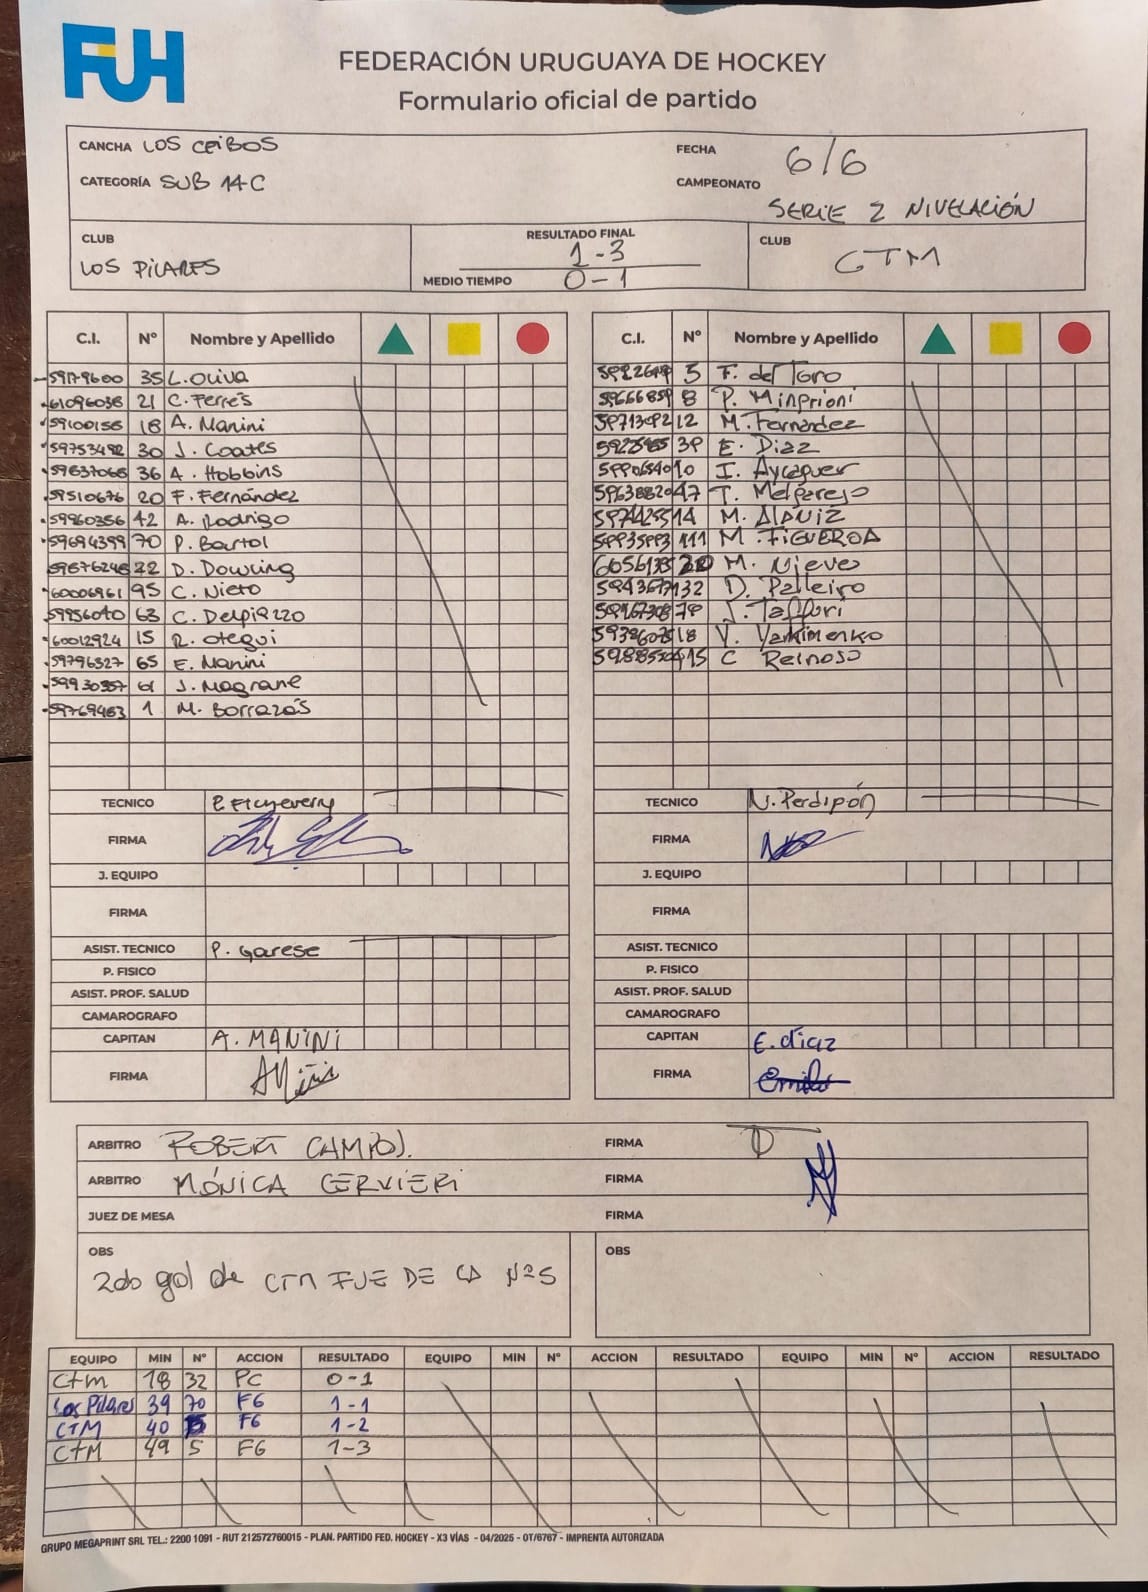 FUH
FEDERACIÓN URUGUAYA DE HOCKEY
Formulario oficial de partido
CANCHA LOS CEIBOS
FECHA 6/6
CATEGORÍA SUB 14-C
CAMPEONATO SERIE 2 NIVELACIÓN
CLUB LOS PILARES
RESULTADO FINAL 1-3
MEDIO TIEMPO 0-1
CLUB CTM
C.I. Nº Nombre y Apellido
59179600 35 L. Oliva
61096038 21 C. Ferrés
59100156 18 A. Manini
59753492 30 J. Coates
59637068 36 A. Hobbins
59510676 20 F. Fernández
59960356 42 A. Rodrigo
59694399 70 P. Bartol
59676246 22 D. Dowling
60006961 95 C. Nieto
59956040 63 C. Delpiazzo
60012924 15 R. Otegui
59796327 65 E. Manini
59930357 61 J. Magrané
59769463 1 M. Borrazás
TECNICO P. Etcheverry
FIRMA
J. EQUIPO
FIRMA
ASIST. TECNICO P. Garese
P. FISICO
ASIST. PROF. SALUD
CAMAROGRAFO
CAPITAN A. MANINI
FIRMA
C.I. Nº Nombre y Apellido
5 F. del Toro
59666859 8 P. Minprioni
59713092 12 M. Fernandez
39 E. Diaz
10 I. Aycaguer
59638820 47 T. Melgarejo
14 M. Alaniz
59935993 111 M. FIGUEROA
M. Nieve
32 D. Palleiro
79 J. Taffuri
18 V. Vakimenko
15 C Reinoso
TECNICO N. Perdigón
FIRMA
J. EQUIPO
FIRMA
ASIST. TECNICO
P. FISICO
ASIST. PROF. SALUD
CAMAROGRAFO
CAPITAN E. diaz
FIRMA
ARBITRO ROBERT CAMPOS. FIRMA
ARBITRO MÓNICA CERVIERI FIRMA
JUEZ DE MESA FIRMA
OBS
2do gol de CTM FUE DE LA Nº5
OBS
EQUIPO MIN Nº ACCION RESULTADO EQUIPO MIN Nº ACCION RESULTADO EQUIPO MIN Nº ACCION RESULTADO
Ctm 18 32 PC 0-1
Los Pilares 39 70 FG 1-1
CTM 40 5 FG 1-2
CTM 49 5 FG 1-3
GRUPO MEGAPRINT SRL TEL.: 2200 1091 - RUT 212572760015 - PLAN. PARTIDO FED. HOCKEY - X3 VÍAS - 04/2025 - OT/6767 - IMPRENTA AUTORIZADA